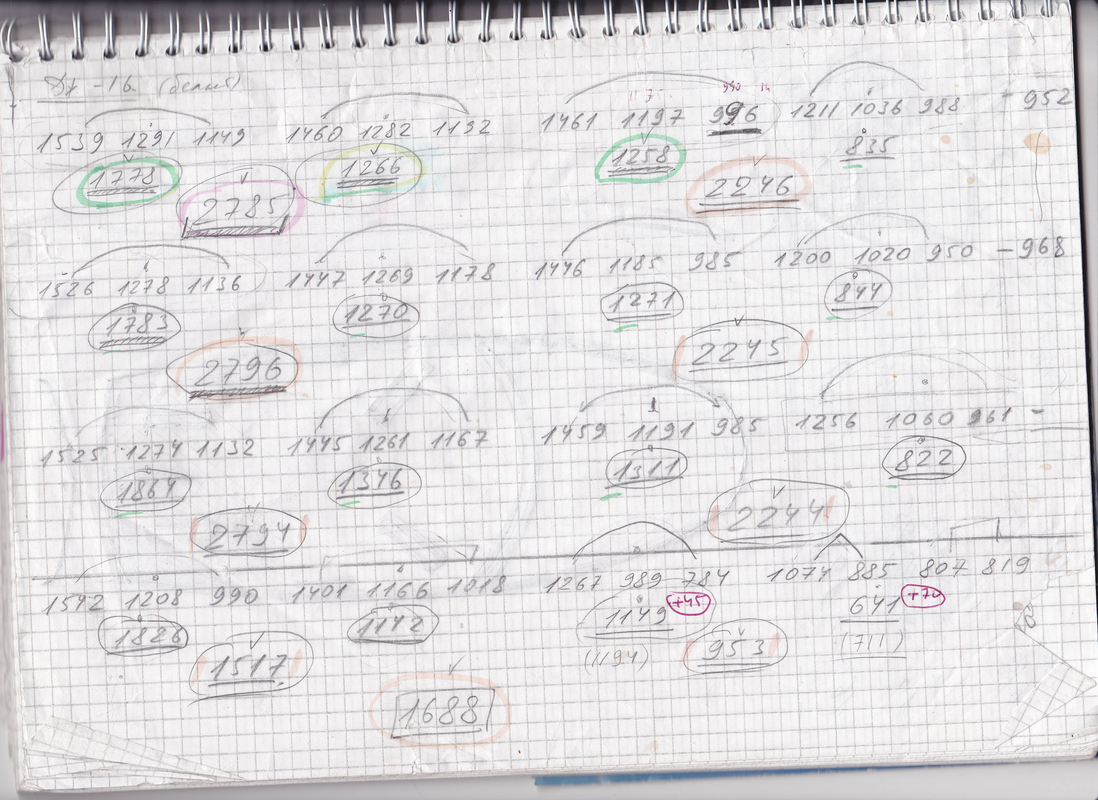 (белый)
990
1539 1291 1149 1460 1282 1132 1461 1197 996 1211 1036 988 - 952
1778 1266 1258 835
2785 2246
1526 1278 1136 1447 1269 1178 1446 1185 985 1200 1020 950 - 968
1783 1270 1271 844
2796 2245
1525 1274 1132 1445 1261 1167 1459 1191 985 1256 1060 961 -
1864 1346 1311 822
2794 2244
1542 1208 990 1401 1166 1018 1267 989 784 1074 885 807 819
1826 1142 1149 +45 641 +70
1517 (1194) 953 (711)
1688